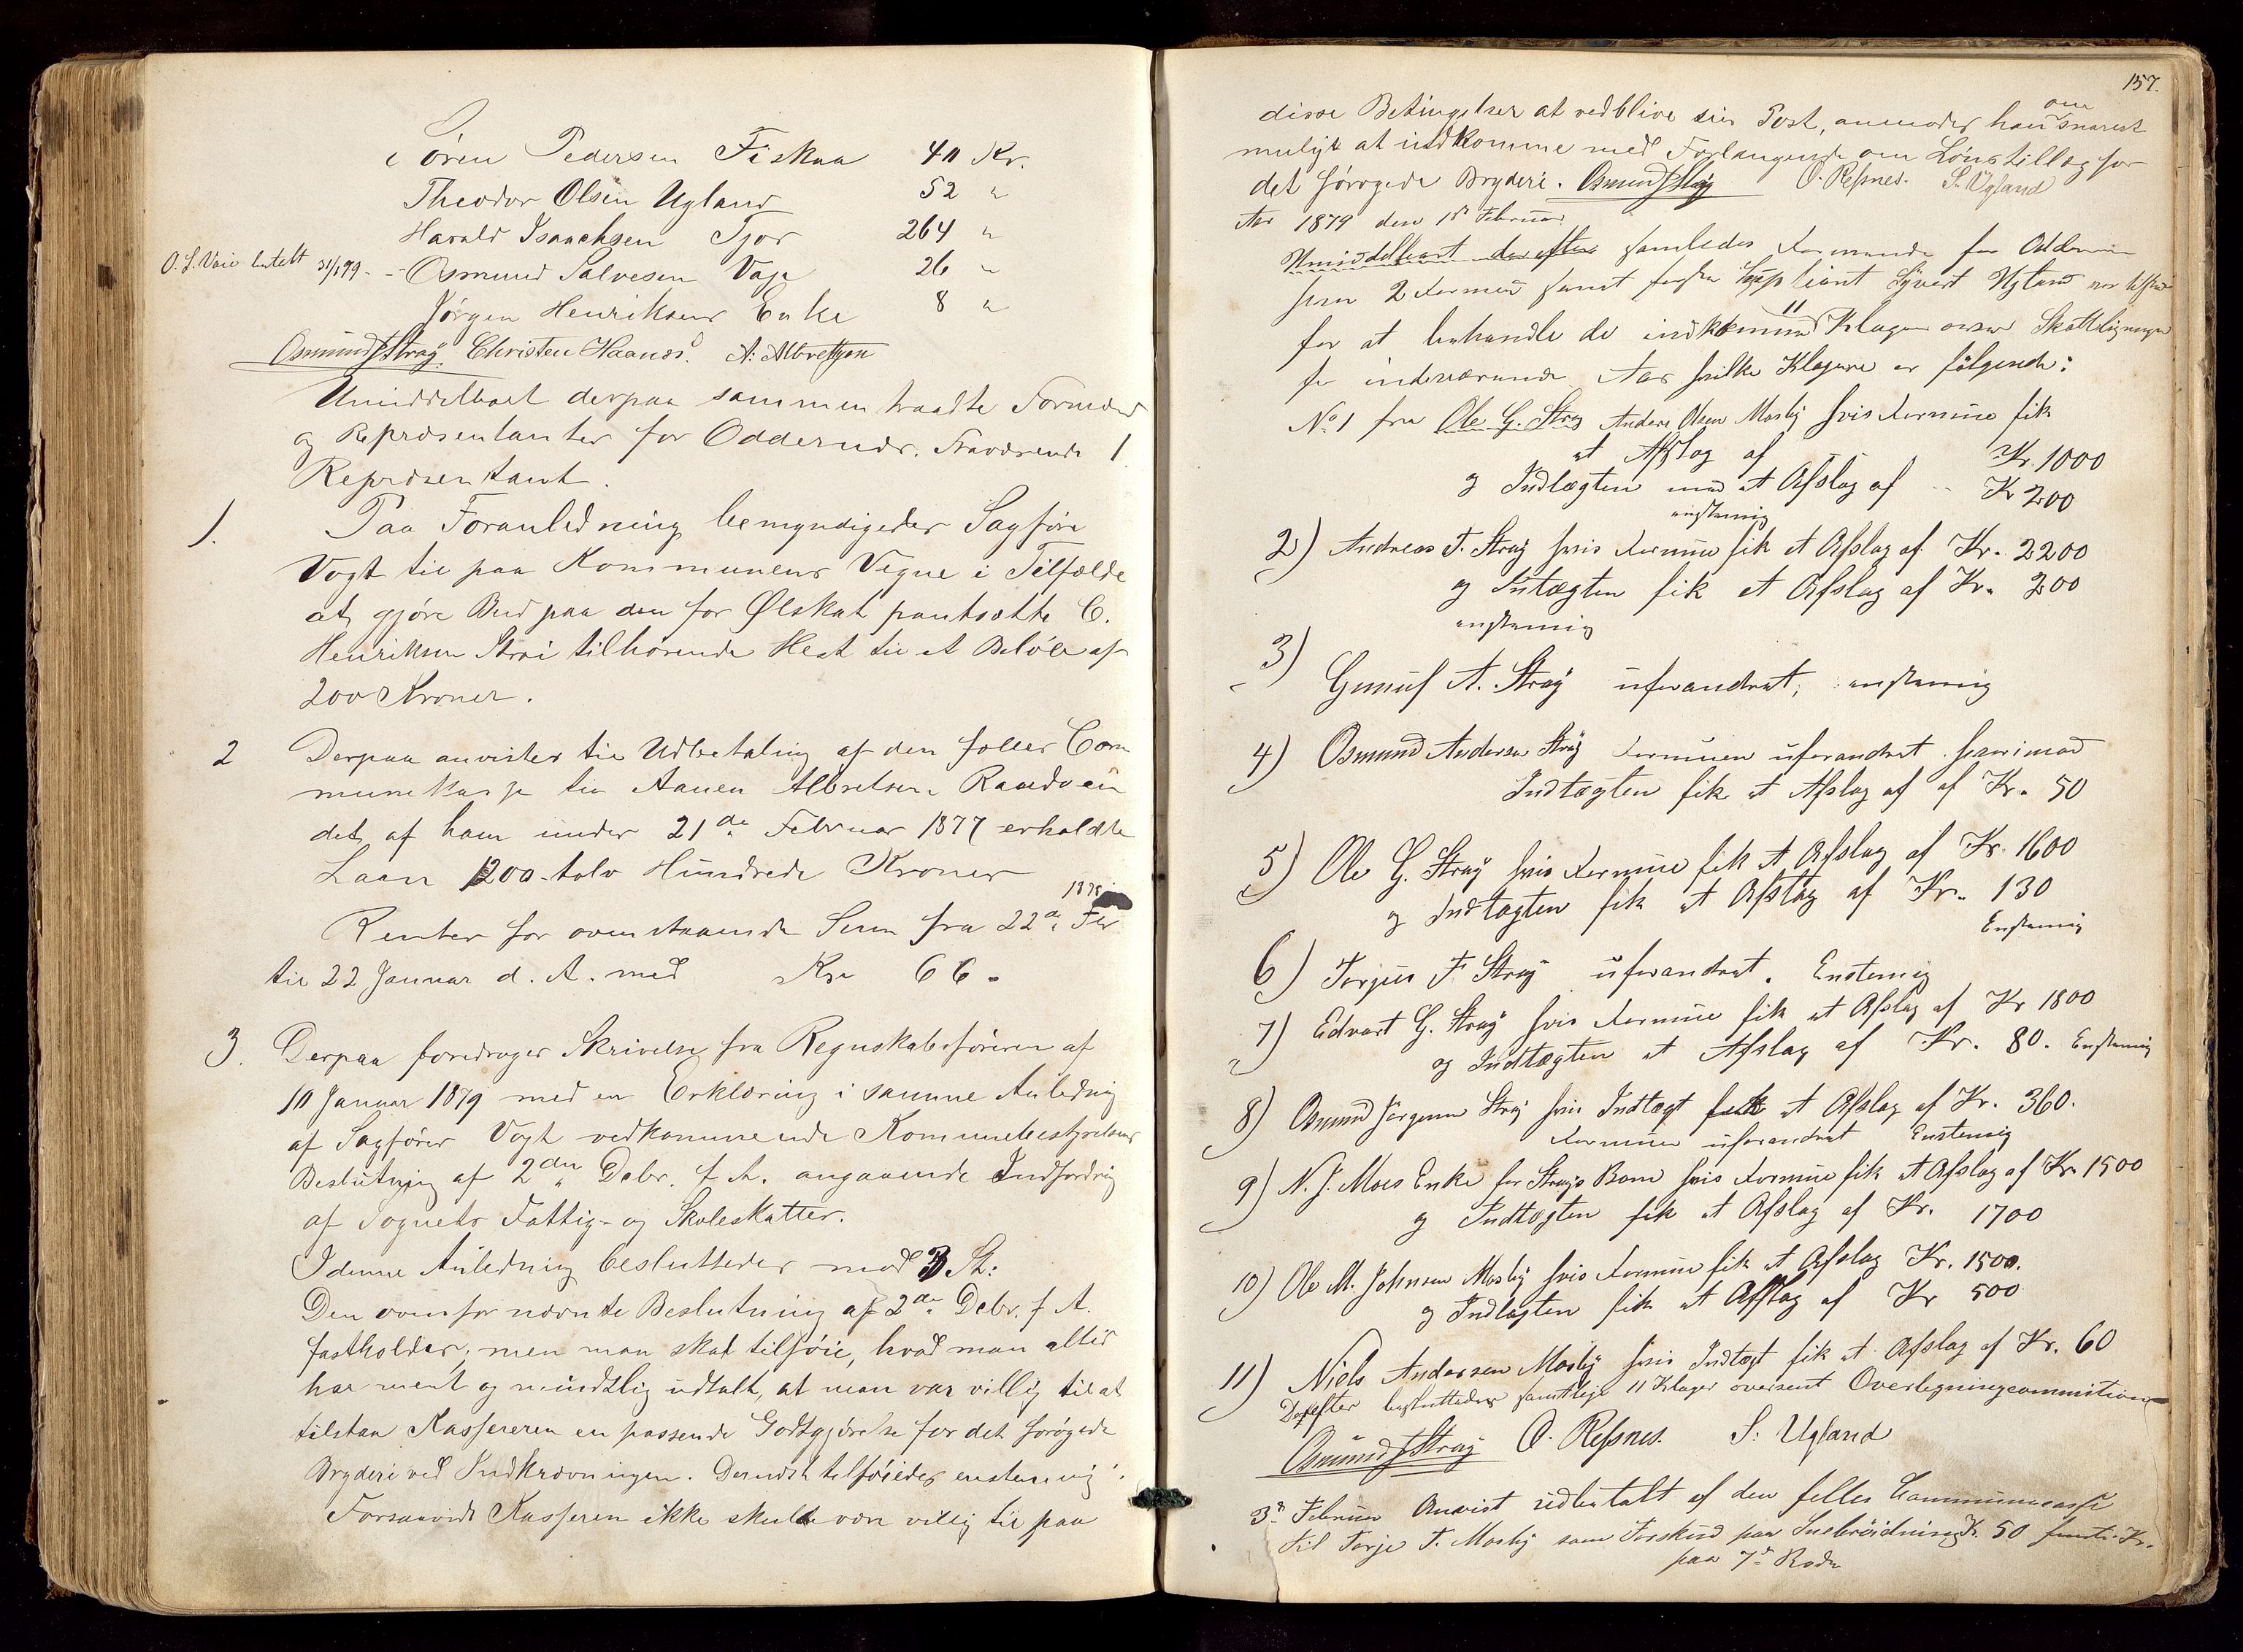 Søren Pedersen Fiskaa 40 Kr.
Theodor Olsen Ugland 52 "
Harald Isaachsen Tjor 264 "
O. S. Vaie betalt 31/1 79. - Osmund Salvesen Vaje 26 "
Jørgen Henriksens Enke 8 "
Osmund Stray. Christen Haanes. A. Albretsen
Umiddelbart derpaa sammentraadte Formænd
og Repræsentanter for Oddernæs. Fraværende 1
Repræsentant.
1. Paa Foranledning bemyndigedes Sagføre
Vogt til paa Kommunens Vegne i Tilfælde
at gjøre Bud paa den for Ølskat pantsatte C.
Henriksen Strai tilhørende Hest til et Beløb af
200 Kroner.
2 Derpaa anvistes til Udbetaling af den fælles Com
munekasse til Aanen Albretsen Raaedvan
det af ham under 21de Februar 1877 erholdte
Laan 1200 - tolv Hundrede Kroner
1878
Renter for ovenstaaende Sum fra 22de Feb
til 22 Januar d. A. med Kr 66 -
3. Derpaa foredroges Skrivelse fra Regnskabsføreren af
10 Januar 1879 med en Erklæring i samme Anledning
af Sagfører Vogt vedkommende Kommunebestyrelsens
Beslutning af 2den Debr. f A. angaaende Indfordring
af Sognets Fattig- og Skoleskatter.
I denne Anledning besluttedes mod 3 St:
Den ovenfor nævnte Beslutning af 2de Debr. f A.
fastholdes; men man skal tilføie, hvad man altid
har ment og mundtlig udtalt, at man var villig til at
tilstaa Kassereren en passende Godtgjørelse for det forøgede
Bryderi ved Indkrævningen. Dernæst tilføiedes enstemig:
Forsaavidt Kasseren ikke skulde være villig til paa
157.
disse Betingelser at vedblive sin Post, anmodes han om snarest
muligt at indkomme med Forlangende om Lønstillæg for
det forøgede Bryderi. Osmund Stray O. Refsnes. S. Ugland
Aar 1879 den 1ste Februar
Umiddelbart derefter samledes Formænde for Oddernæs
paa 2 Formænd samt første Suppleant Syvert Ugland
for at behandle de indkomne 11 Klager over Skatteligningen
for indeværende Aar hvilke Klagere er følgende:
No 1 fra Ole G. Stray Anders Olsen Mosby hvis Formue fik
et Afslag af Kr. 1000
og Indtægten med et Afslag af - Kr 200
enstemig
2) Andreas T. Stray hvis Formue fik et Afslag af Kr. 2200
og Intægten fik et Afslag af Kr. 200
enstemig
3) Gunuf A. Stray uforandret, enstemig
4) Osmund Andersen Stray Formuen uforandret hvorimod
Indtægten fik et Afslag af af Kr. 50
5) Ole G. Stray hvis Formue fik et Afslag af Kr. 1600
og Indtægten fik et Afslag af Kr. 130
Enstemig
6) Torjus F. Stray uforandret. Enstemig
7) Edvart G. Stray hvis Formue fik et Afslag af Kr 1800
og Indtægten et Afslag af Kr. 80. Enstemig
8) Osmund Jørgensen Stray hvis Indtægt fik et Afslag af Kr. 360.
Formuen uforandret Enstemig
9) N. J. Moes Enke for Strays Bom hvis Formue fik et Afslag af Kr. 1500
og Indtægten fik et Afslag af Kr. 1700
10) Ole M. Johnsen Mosby hvis Formue fik et Afslag Kr. 1500.
og Indtægten fik et Afslag af Kr 500
11) Niels Andersen Mosby hvis Indtægt fik et Afslag af Kr. 60
Derefter besluttedes samtlige 11 Klager oversent Overligningscommitionen
Osmund Stray O. Refsnes. S. Ugland
3de Februar Anvist udbetalt af den felles Communecasse
til Torje T. Mosby som Forskud paa Snebrøidning Kr. 50 femti Kr.
paa 7de Rode